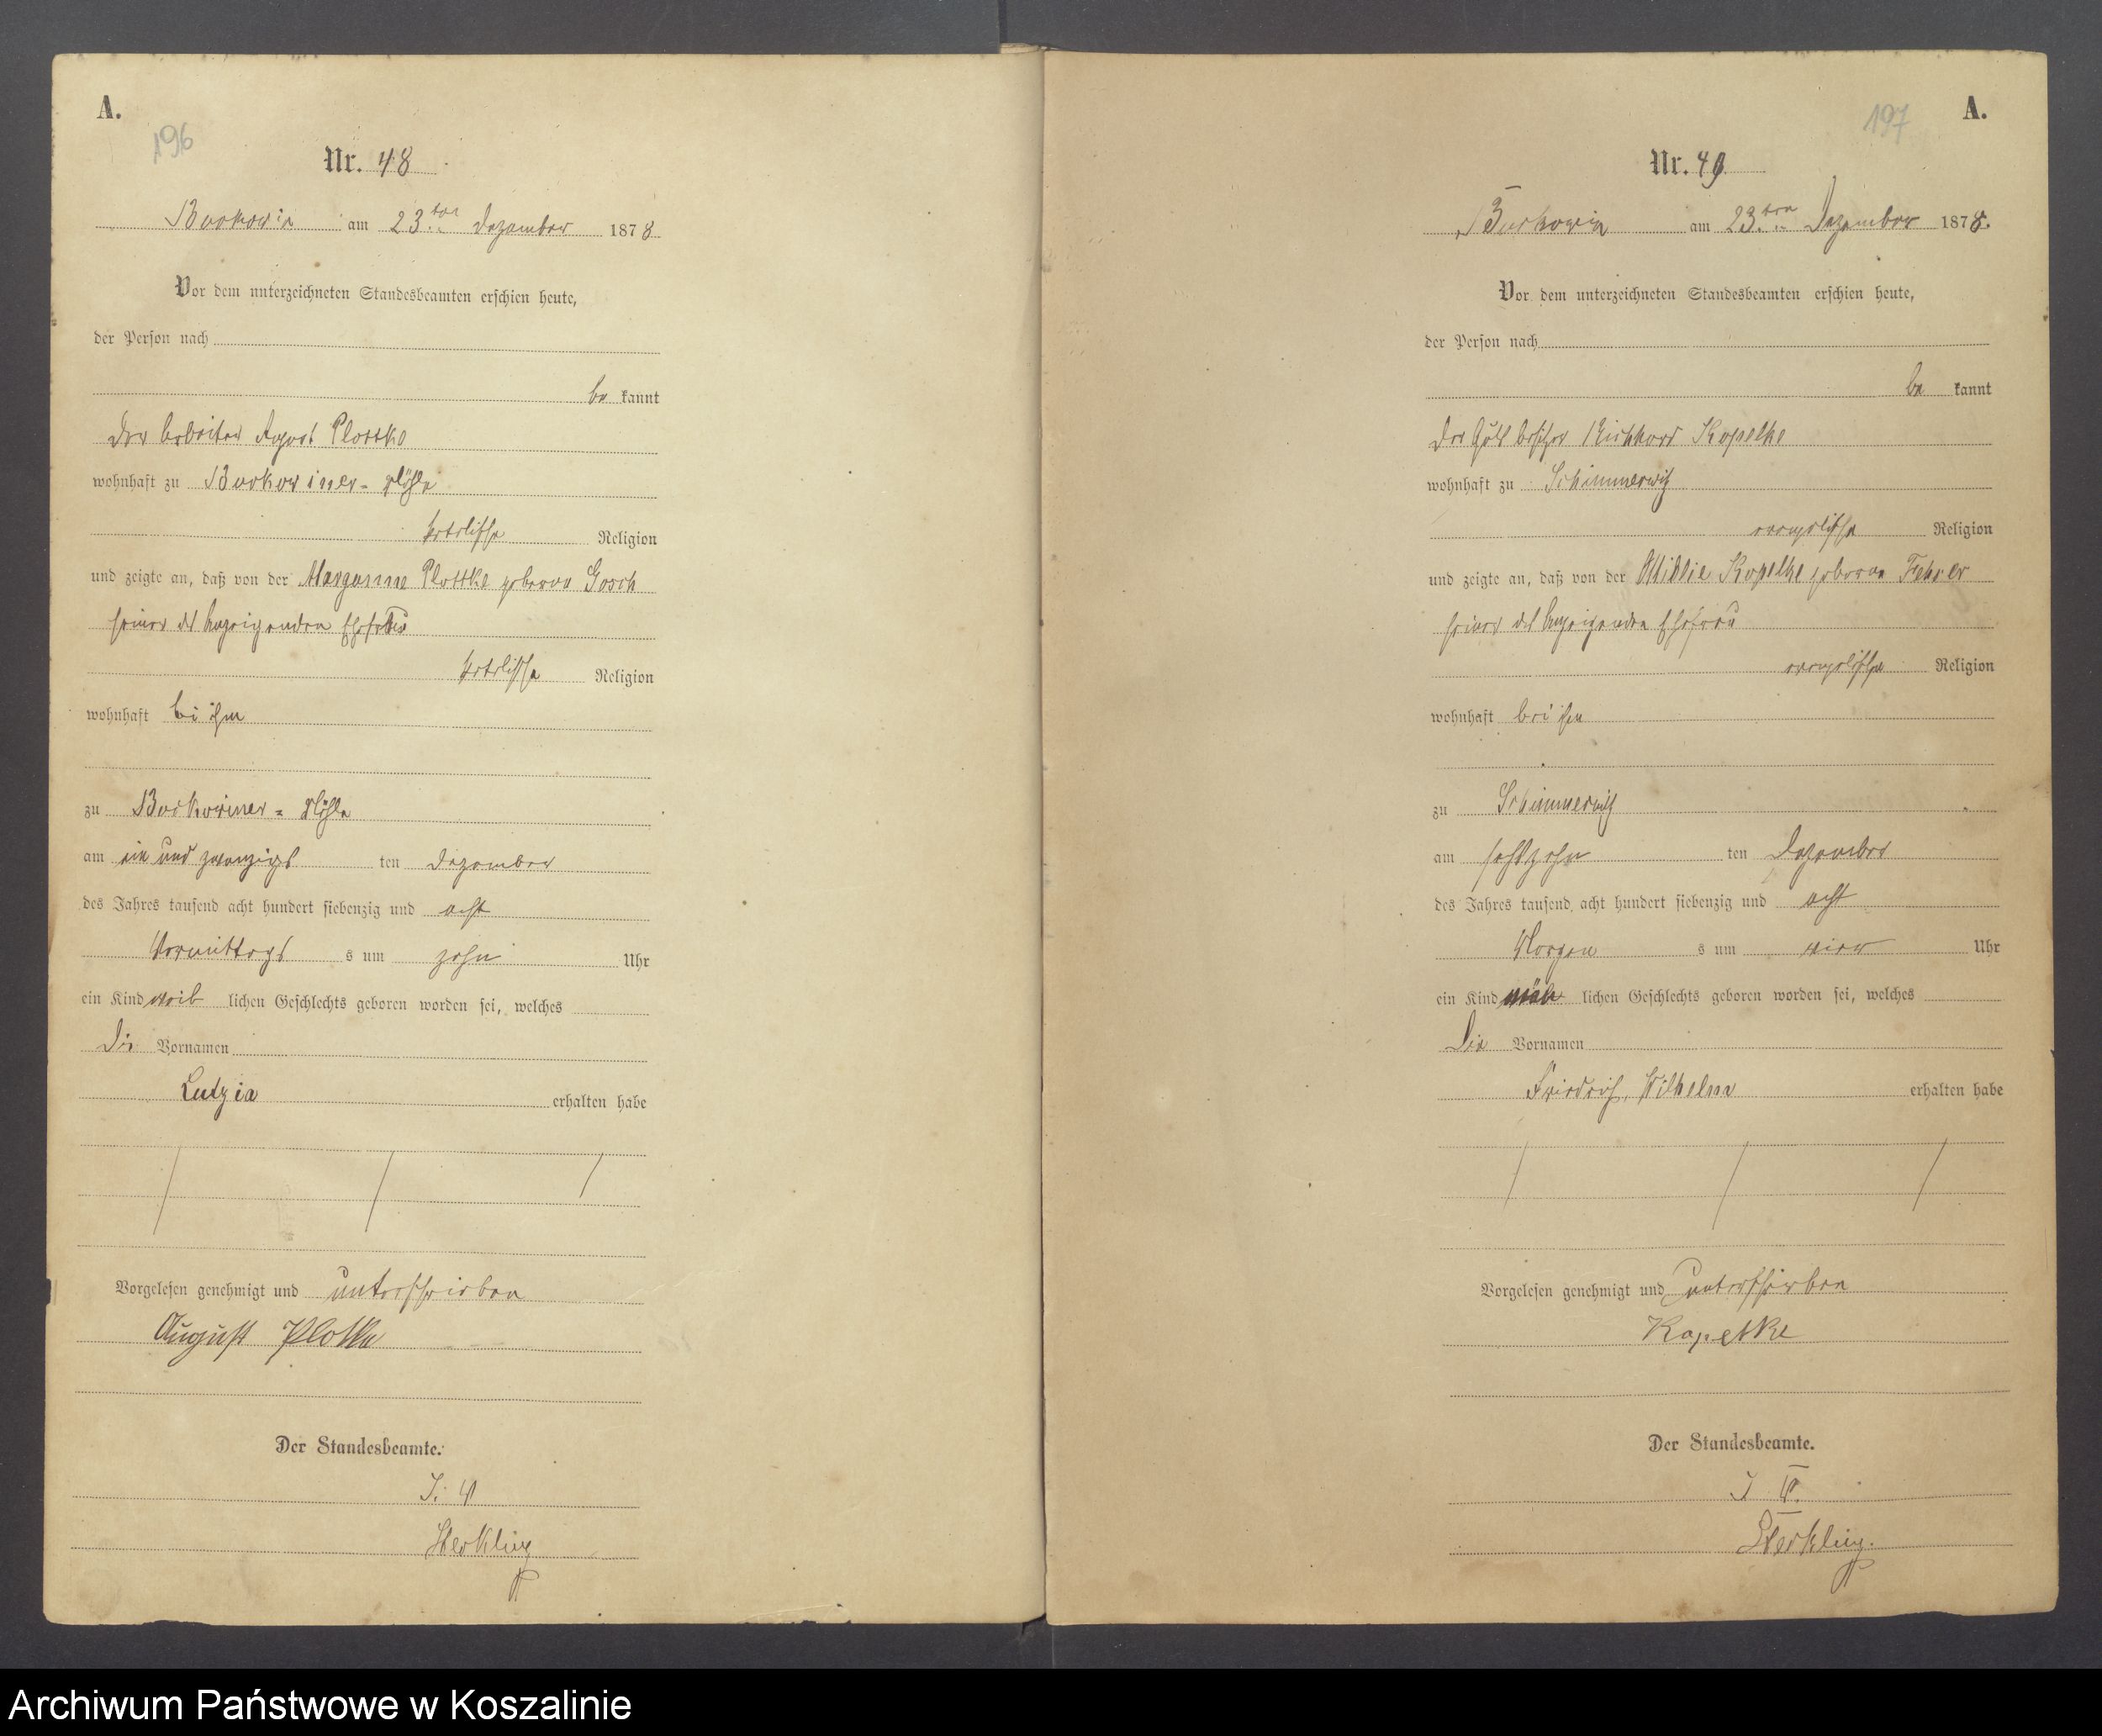 A.
196
Nr. 48
Buckowin am 23ten Dezember 1878
Vor dem unterzeichneten Standesbeamten erschien heute,
der Person nach
be kannt
Der Arbeiter August Plottke
wohnhaft zu Buckowiner-Mühle
katolische Religion
und zeigte an, daß von der Plottke geborne
seiner des Anzeigenden Ehefrau
katolische Religion
wohnhaft bei ihm
zu Buckowiner-Mühle
am ein und zwanzigs ten Dezember
des Jahres tausend acht hundert siebenzig und acht
Vormittags s um zehn Uhr
ein Kind weib lichen Geschlechts geboren worden sei, welches
Die Vornamen
Lutzia erhalten habe
Vorgelesen genehmigt und unterschrieben
August Plottke
Der Standesbeamte.
I. V
Sterkling
A.
197
Nr. 49
Buckowin am 23ten Dezember 1878.
Vor dem unterzeichneten Standesbeamten erschien heute,
der Person nach
be kannt
Der Richhard Kapelke
wohnhaft zu Schimmerwitz
evangelische Religion
und zeigte an, daß von der Kapelke geborne
seiner des Anzeigenden Ehefrau
evangelische Religion
wohnhaft bei ihm
zu Schimmerwitz
am sechszehn ten Dezember
des Jahres tausend acht hundert siebenzig und acht
Morgen s um vier Uhr
ein Kind män lichen Geschlechts geboren worden sei, welches
Die Vornamen
Friedrich, Wilhelm erhalten habe
Vorgelesen genehmigt und unterschrieben
Kapelke
Der Standesbeamte.
I V.
Sterkling.
Archiwum Państwowe w Koszalinie